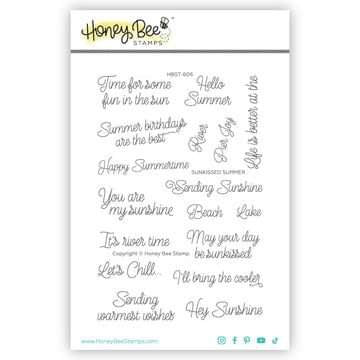 Honey Bee
STAMPS
HBST-606
Time for some
fun in the sun
Hello
Summer
Life is better at the
Summer birthdays
are the best
River
Pier
Joy
Happy Summertime
SUNKISSED SUMMER
Sending Sunshine
You are
my sunshine
Beach
Lake
It's river time
May your day
be sunkissed
Copyright © Honey Bee Stamps
Let's Chill...
I'll bring the cooler
Sending
warmest wishes
Hey Sunshine
www.HoneyBeeStamps.com